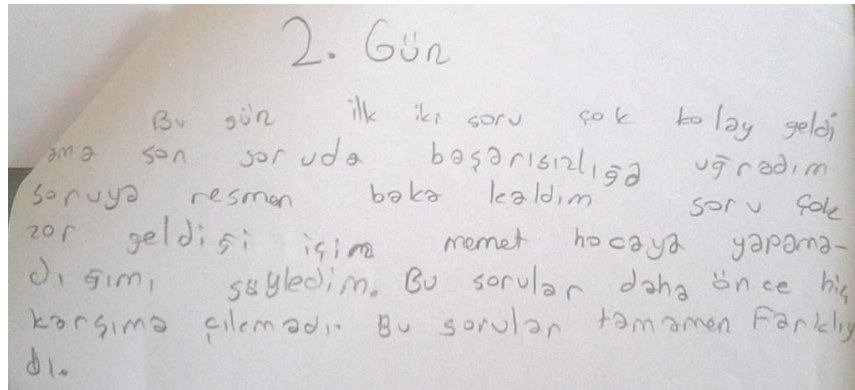 2. Gün
Bu gün ilk iki soru çok kolay geldi
ama son soruda başarısızlığa uğradım
soruya resmen baka kaldım soru çok
zor geldiği için memet hocaya yapama-
dığımı söyledim. Bu sorular daha önce hiç
karşıma çıkmadı. Bu sorular tamamen Farklıy
dı.